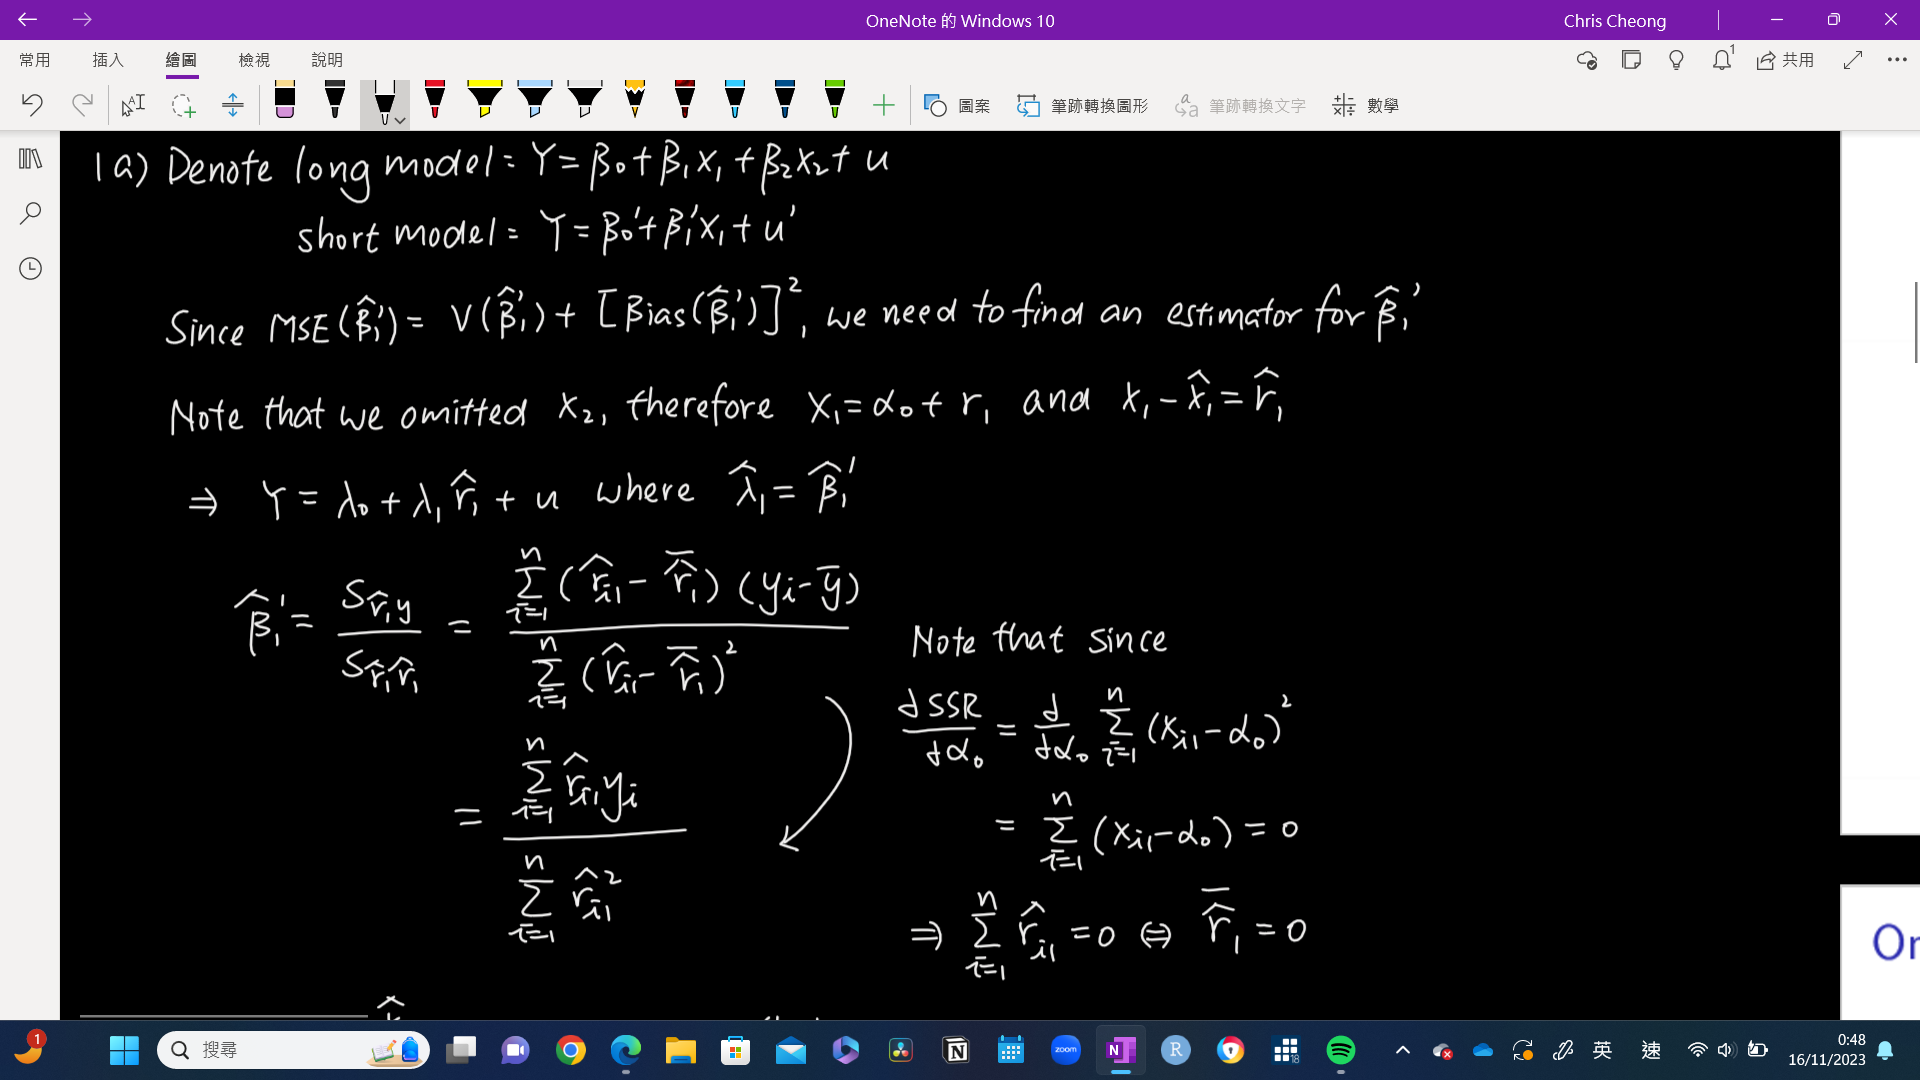 OneNote 的 Windows 10
Chris Cheong
常用 插入 繪圖 檢視 說明
1 共用
圖案 筆跡轉換圖形 筆跡轉換文字 數學
1a) Denote long model: Y = β₀ + β₁x₁ + β₂x₂ + u
short model: Y = β₀' + β₁'x₁ + u'
Since MSE(β̂₁') = V(β̂₁') + [Bias(β̂₁')]², we need to find an estimator for β̂₁'
Note that we omitted x₂, therefore x₁ = α₀ + r₁ and x₁ - x̂₁ = r̂₁
⇒ Y = λ₀ + λ₁r̂₁ + u where λ̂₁ = β̂₁'
β̂₁' = S_{r̂₁y} / S_{r̂₁r̂₁} = Σ_{i=1}^{n} (r̂_{i1} - r̂̄₁)(y_i - ȳ) / Σ_{i=1}^{n} (r̂_{i1} - r̂̄₁)²
= Σ_{i=1}^{n} r̂_{i1} y_i / Σ_{i=1}^{n} r̂_{i1}²
Note that since
dSSR/dα₀ = d/dα₀ Σ_{i=1}^{n} (x_{i1} - α₀)²
= Σ_{i=1}^{n} (x_{i1} - α₀) = 0
⇒ Σ_{i=1}^{n} r̂_{i1} = 0 ⇔ r̂̄₁ = 0
Or
1
搜尋
zoom
N
R
18
英
速
0:48
16/11/2023